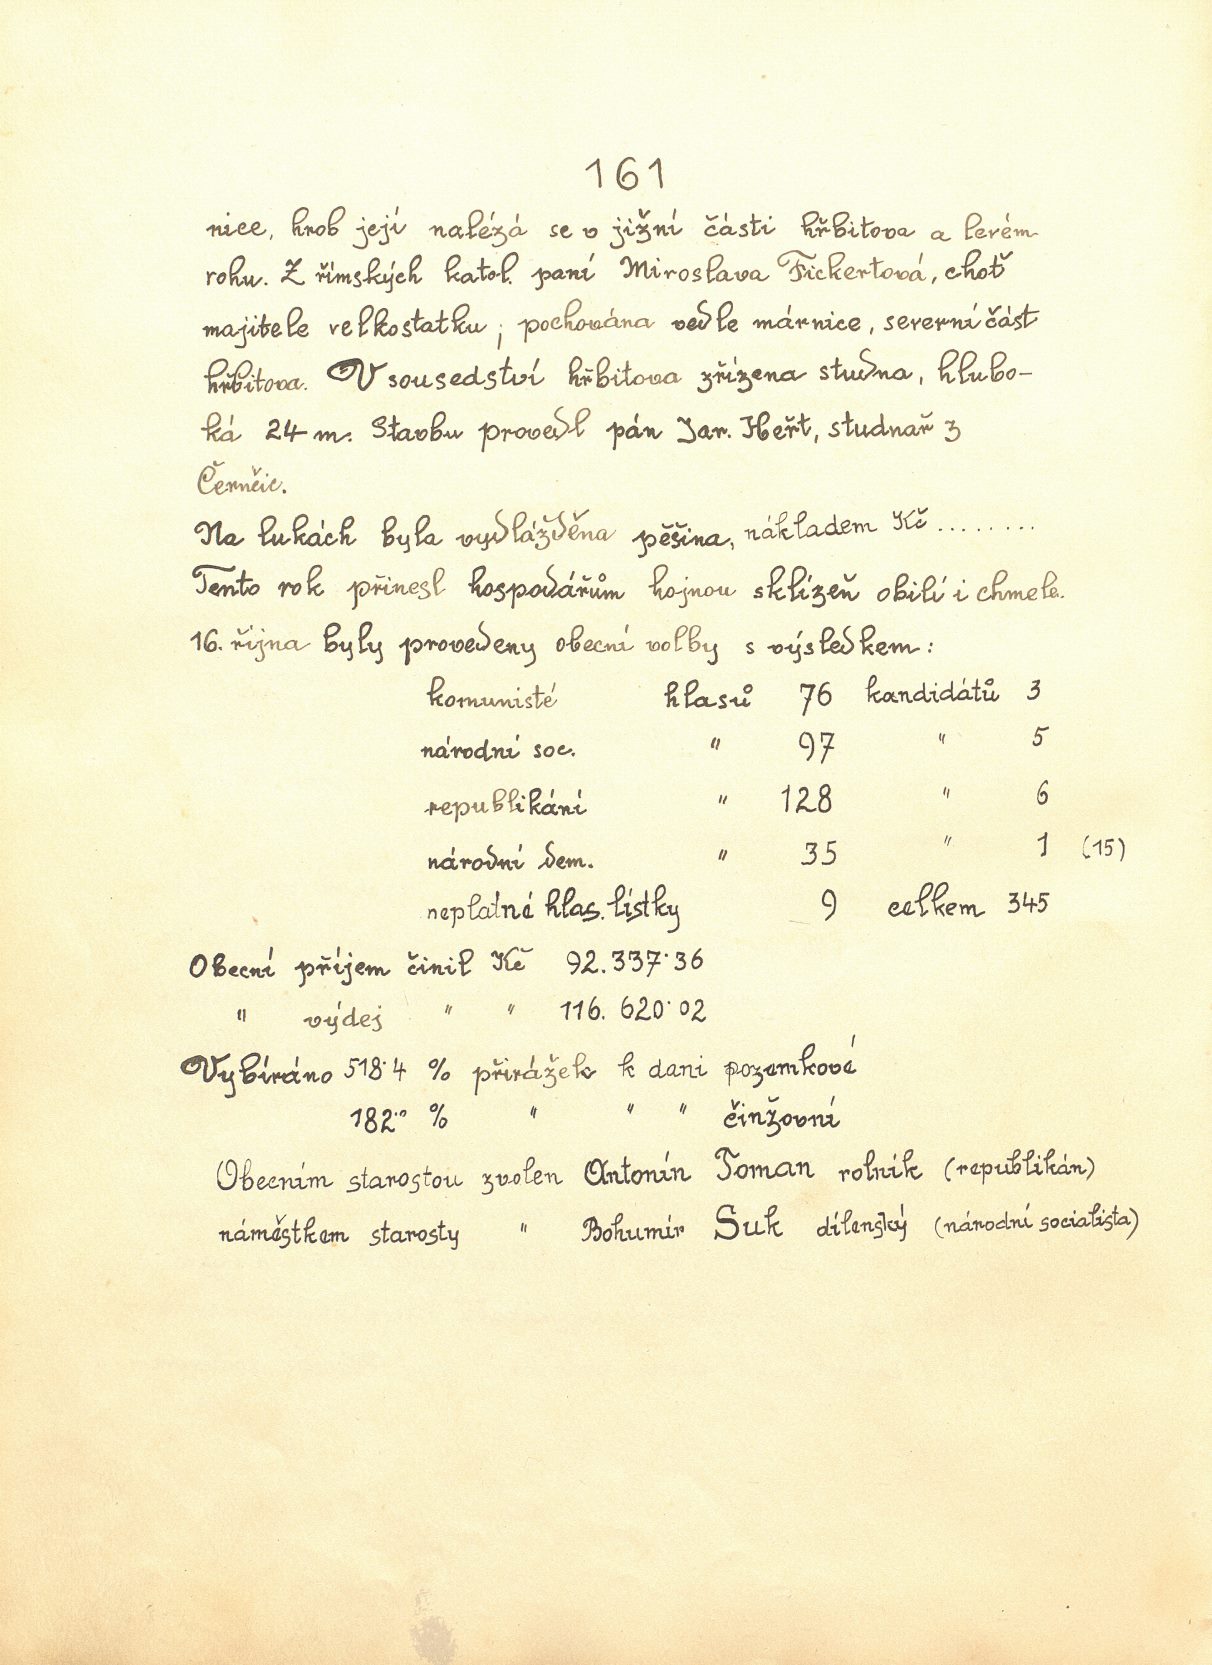 161
nice, hrob její nalézá se v jižní části hřbitova a levém
rohu. Z římských katol. paní Miroslava Fickertová, choť
majitele velkostatku; pochována vedle márnice, severní část
hřbitova. V sousedství hřbitova zřízena studna, hlubo-
ká 24 m. Stavbu provedl pán Jar. Heřt, studnař z
Černčic.
Na lukách byla vydlážděna pěšina, nákladem Kč ........
Tento rok přinesl hospodářům hojnou sklízeň obilí i chmele.
16. října byly provedeny obecní volby s výsledkem:
komunisté hlasů 76 kandidátů 3
národní soc. " 97 " 5
republikáni " 128 " 6
národní dem. " 35 " 1 (15)
neplatné hlas. lístky 9 celkem 345
Obecní příjem činil Kč 92.337·36
" výdej " " 116.620·02
Vybíráno 518·4 % přirážek k dani pozemkové
182·0 % " " " činžovní
Obecním starostou zvolen Antonín Toman rolník (republikán)
náměstkem starosty " Bohumír Suk dílenský (národní socialista)